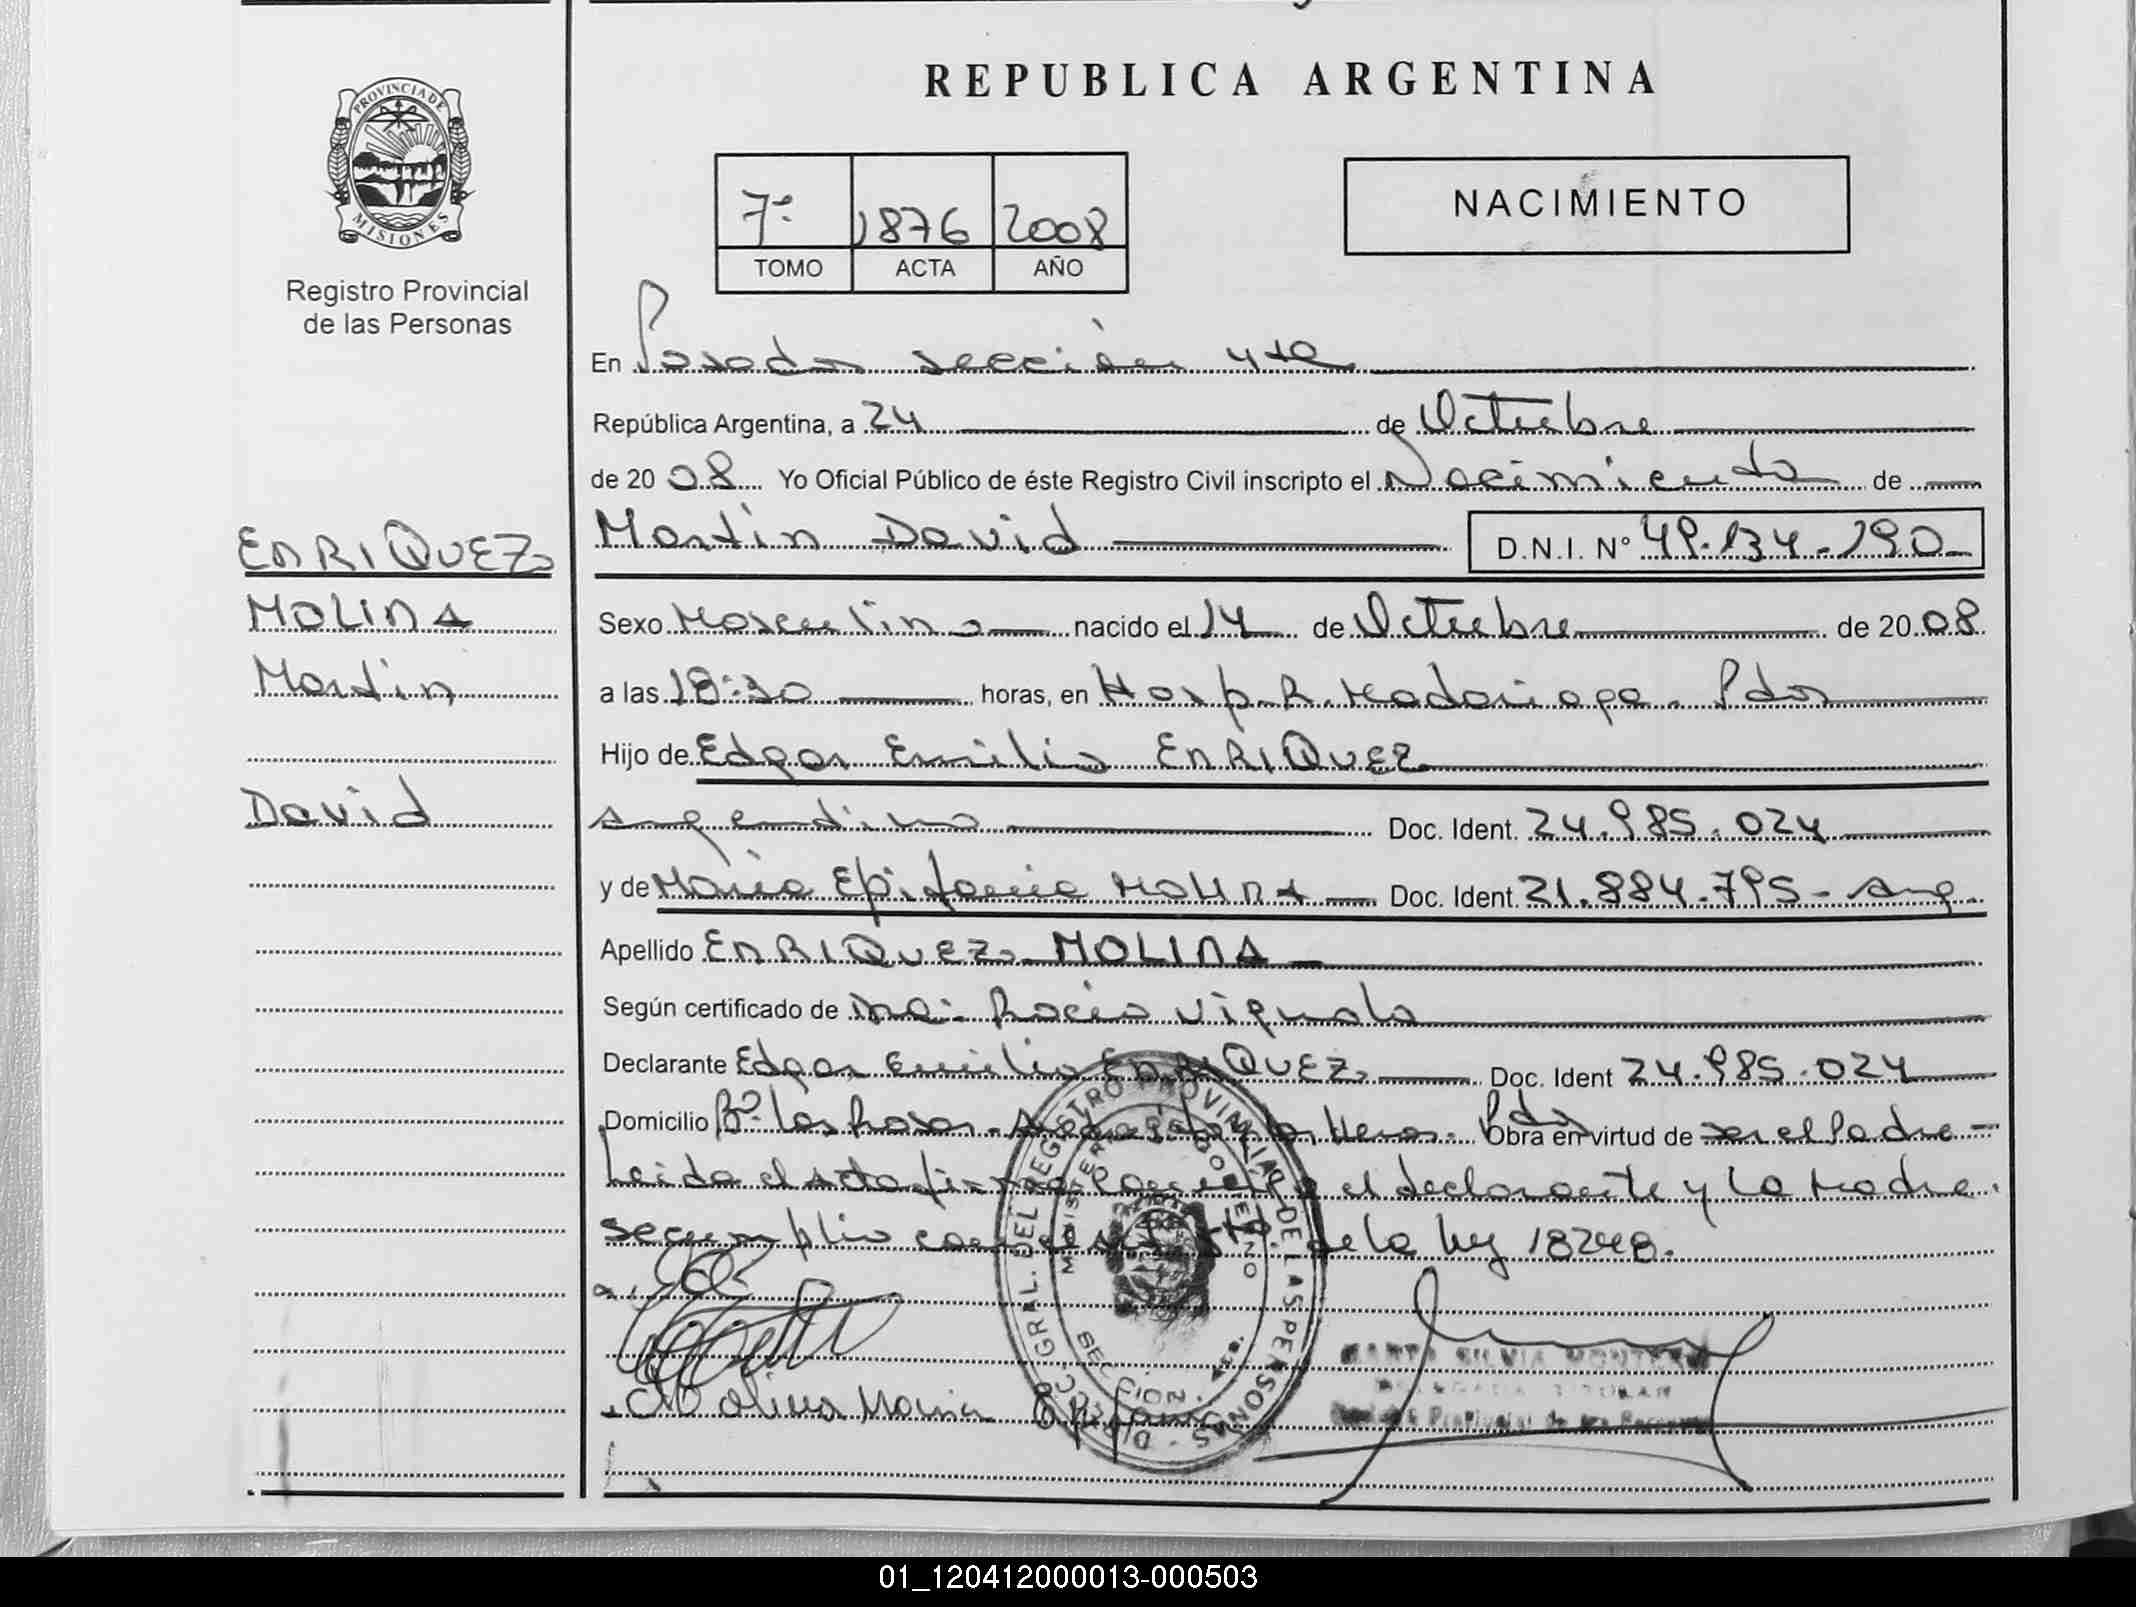 REPUBLICA ARGENTINA
PROVINCIA DE
MISIONES
Registro Provincial
de las Personas
7º 1876 2008
TOMO ACTA AÑO
NACIMIENTO
En Posadas sección 4ta
República Argentina, a 24 de Octubre
de 2008 Yo Oficial Público de éste Registro Civil inscripto el Nacimiento de
Martin David D.N.I. Nº 49.134.190
ENRIQUEZ
MOLINA
Martin
David
Sexo Masculino nacido el 14 de Octubre de 2008
a las horas, en Hosp. R. Madariaga. Pdas
Hijo de Edgar Emilio ENRIQUEZ
argentino Doc. Ident. 24.985.024
y de Maria Epifania MOLINA Doc. Ident. 21.884.795 - Arg.
Apellido ENRIQUEZ MOLINA
Según certificado de Rocio Vignola
Declarante Edgar Emilio ENRIQUEZ Doc. Ident 24.985.024
Domicilio Bº Las Rosas. Pdas Obra en virtud de ser el Padre
Leida el acta el declarante y la Madre.
se cumplio con el de la ley 18248.
Molina Maria Epifania
DIRECC. GRAL. DEL REGISTRO PROVINCIAL DE LAS PERSONAS
MINISTERIO GOBIERNO
SECCION
MARTA SILVIA
01_120412000013-000503